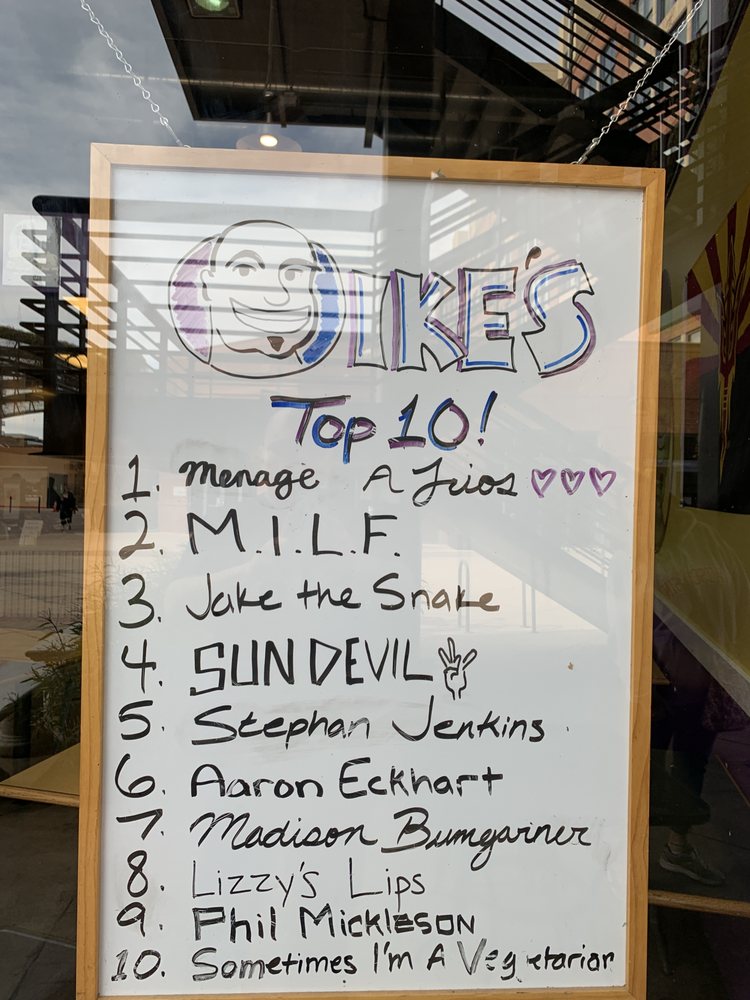 IKE'S
Top 10!
1. Menage A Trios
2. M.I.L.F.
3. Jake the Snake
4. SUN DEVIL
5. Stephan Jenkins
6. Aaron Eckhart
7. Madison Bumgarner
8. Lizzy's Lips
9. Phil Mickleson
10. Sometimes I'm A Vegetarian